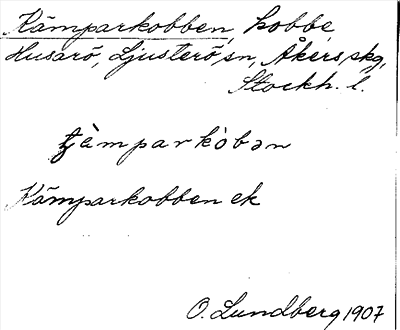 Kämparkobben, kobbe,
Husarö, Ljusterö sn, Åkers skg,
Stockh. l.
tjä̀mparkòbən
Kämparkobben ek
O. Lundberg 1907